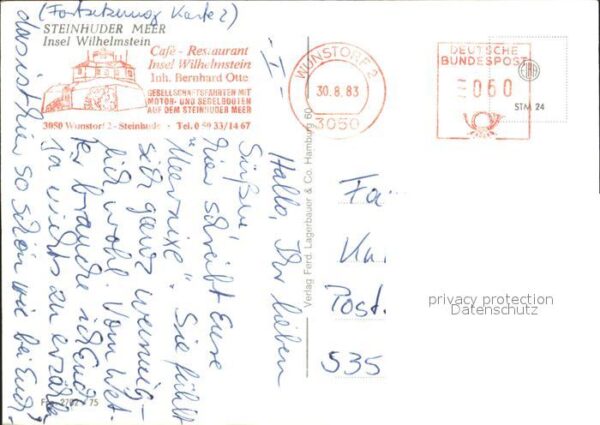 (Fortsetzung Karte 2)
STEINHUDER MEER
Insel Wilhelmstein
Café - Restaurant
Insel Wilhelmstein
Inh. Bernhard Otte
GESELLSCHAFTSFAHRTEN MIT
MOTOR- UND SEGELBOOTEN
AUF DEM STEINHUDER MEER
3050 Wunstorf 2 - Steinhude · Tel. 0 50 33/14 67
WUNSTORF 2
30.8.83
3050
DEUTSCHE
BUNDESPOST
060
STM 24
- I -
Hallo, Ihr lieben
Süßen
hier schreibt Eure
"Meernixe". Sie fühlt
sich ganz wonnig-
lich wohl. Vom Wet-
ter brauche ich Euch
ja nichts zu erzählen
das ist hier so schön wie bei Euch,
Verlag Ferd. Lagerbauer & Co. Hamburg 60
Fa
Post.
535
privacy protection
Datenschutz
75